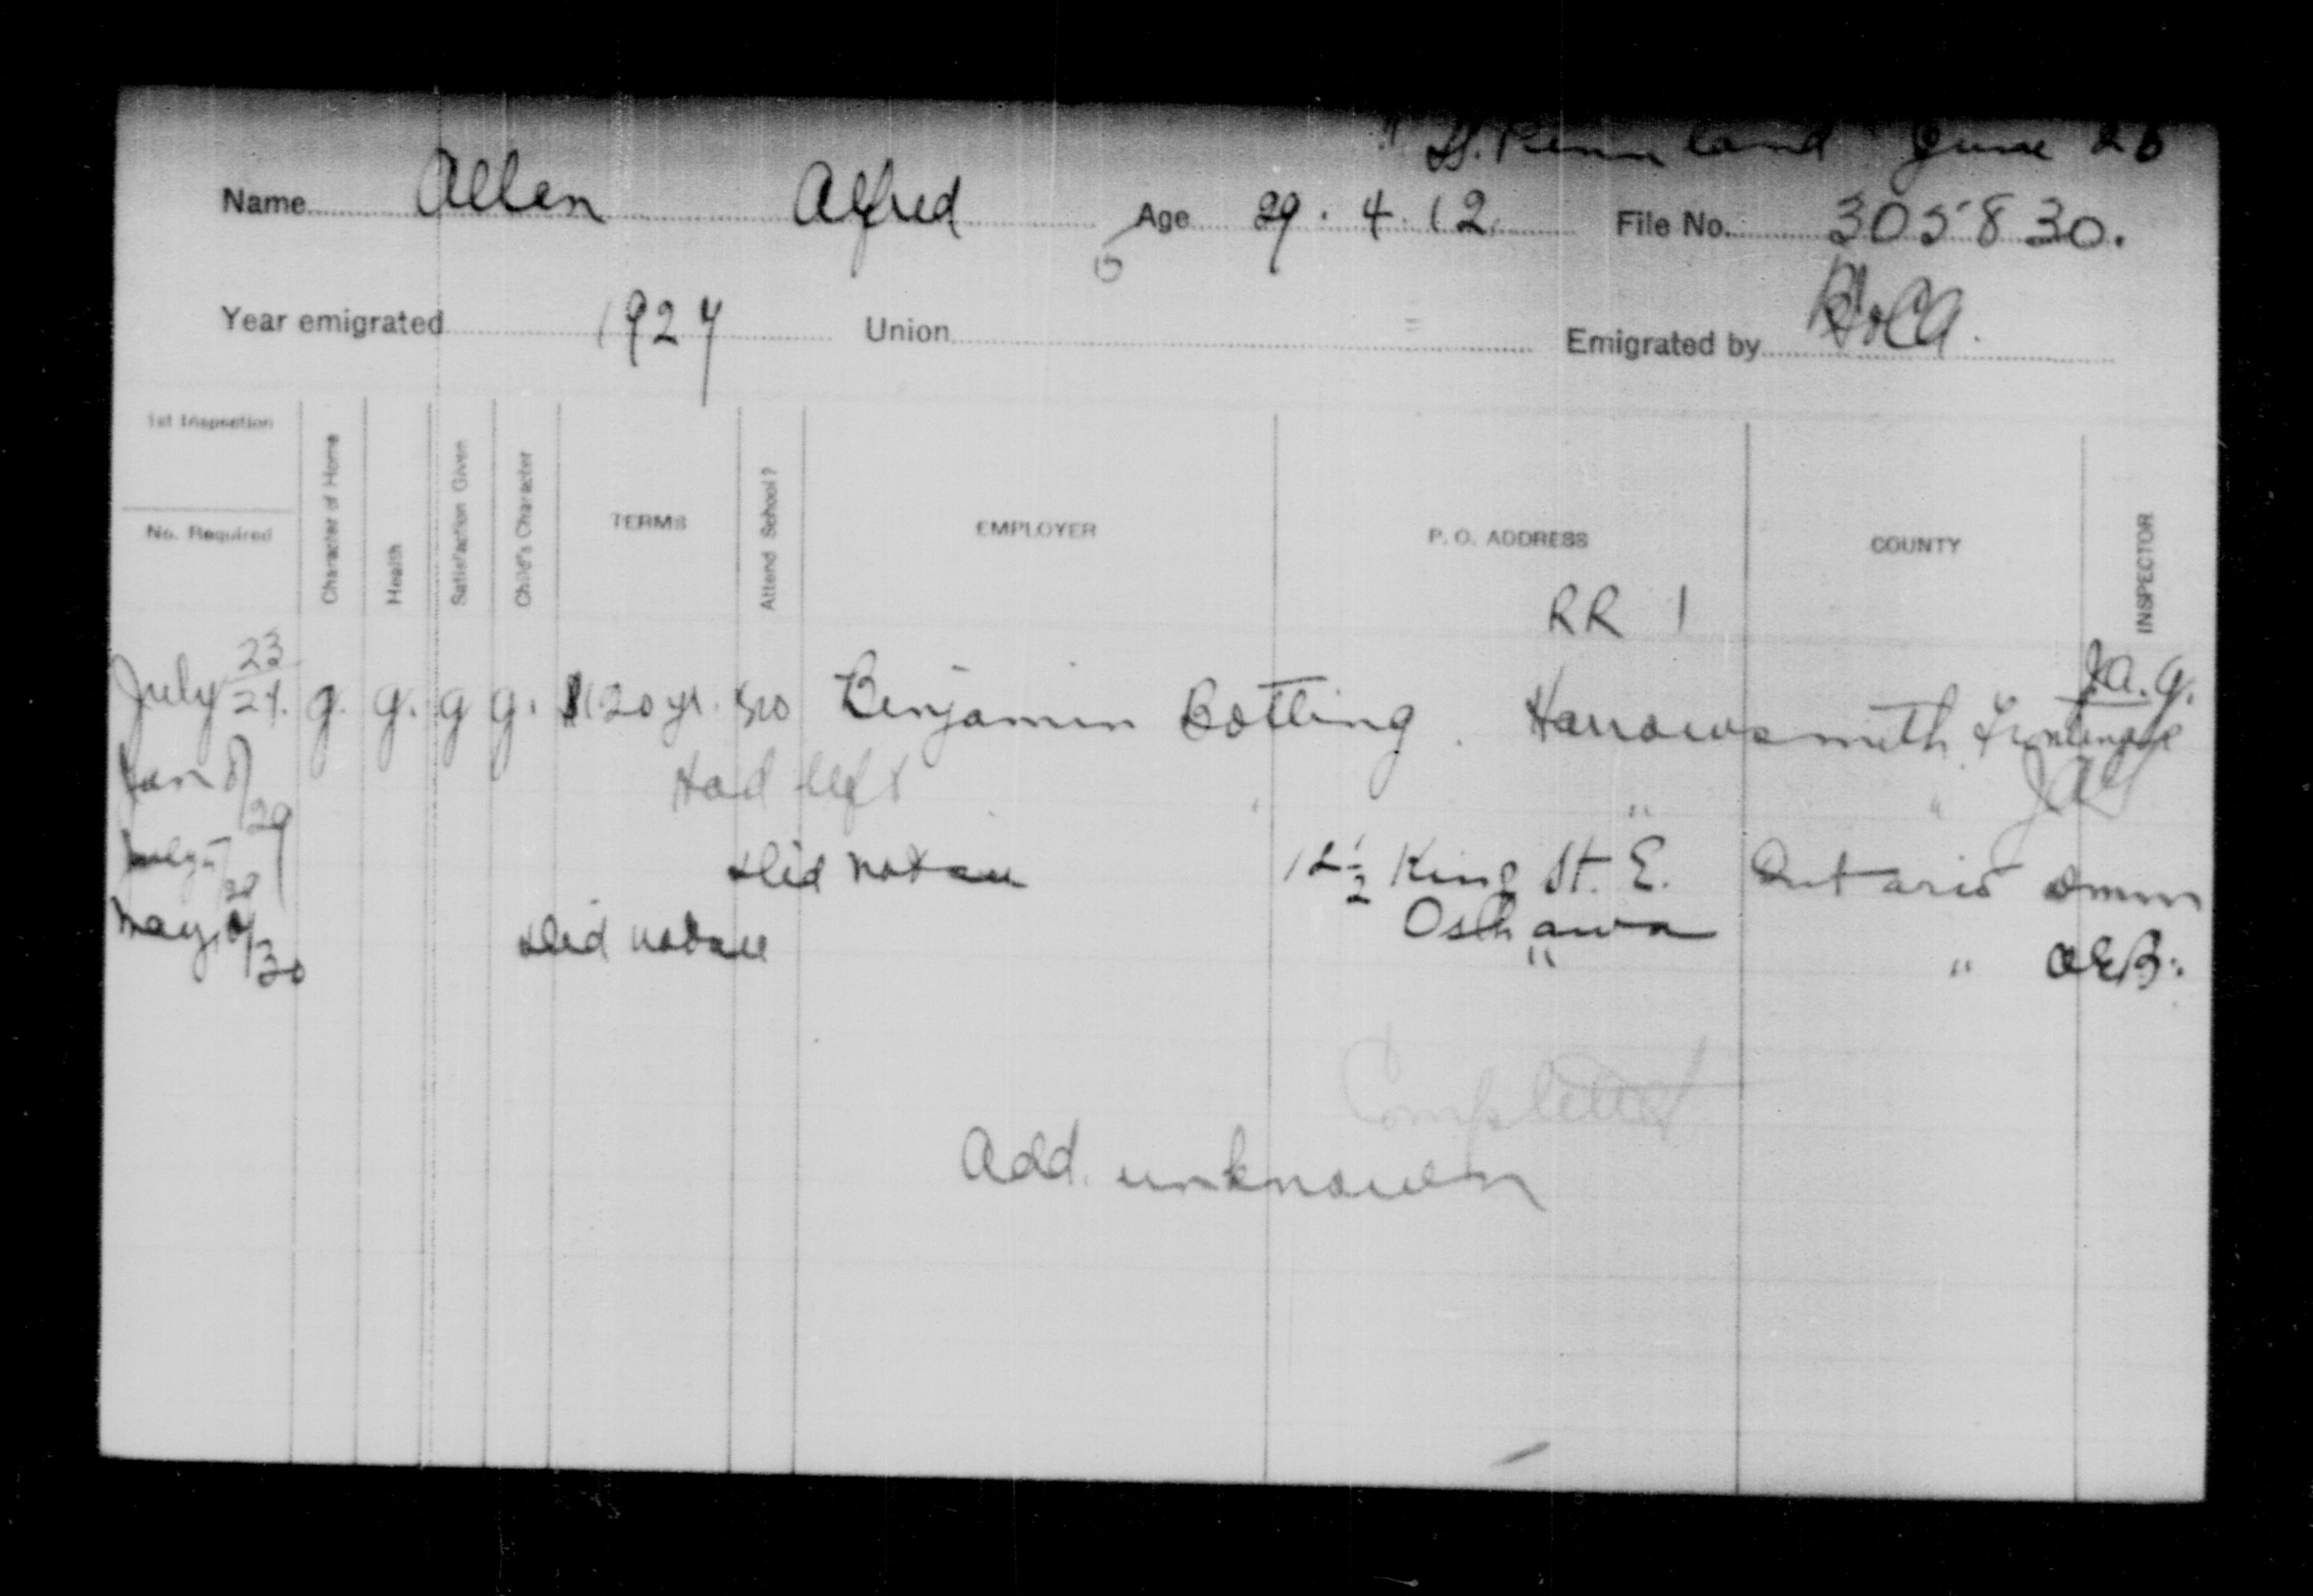 " SS. Pennland June 26
Name Allen Alfred Age 29. 4. 12. File No. 305830.
Year emigrated 1927 Union Emigrated by
1st Inspection
No. Required
Character of Home
Health
Satisfaction Given
Child's Character
TERMS
Attend School?
EMPLOYER
P. O. ADDRESS
COUNTY
INSPECTOR
RR 1
July 23 g. g. g g. $120 yr. no Benjamin Botting. Harrowsmith Frontenac J.A.G.
Jan 8/29 Had left " " JAG
Did not see 12½ King St. E. Ontario
Oshawa
May /30 Did not see " " OEB.
Completed
Add. unknown